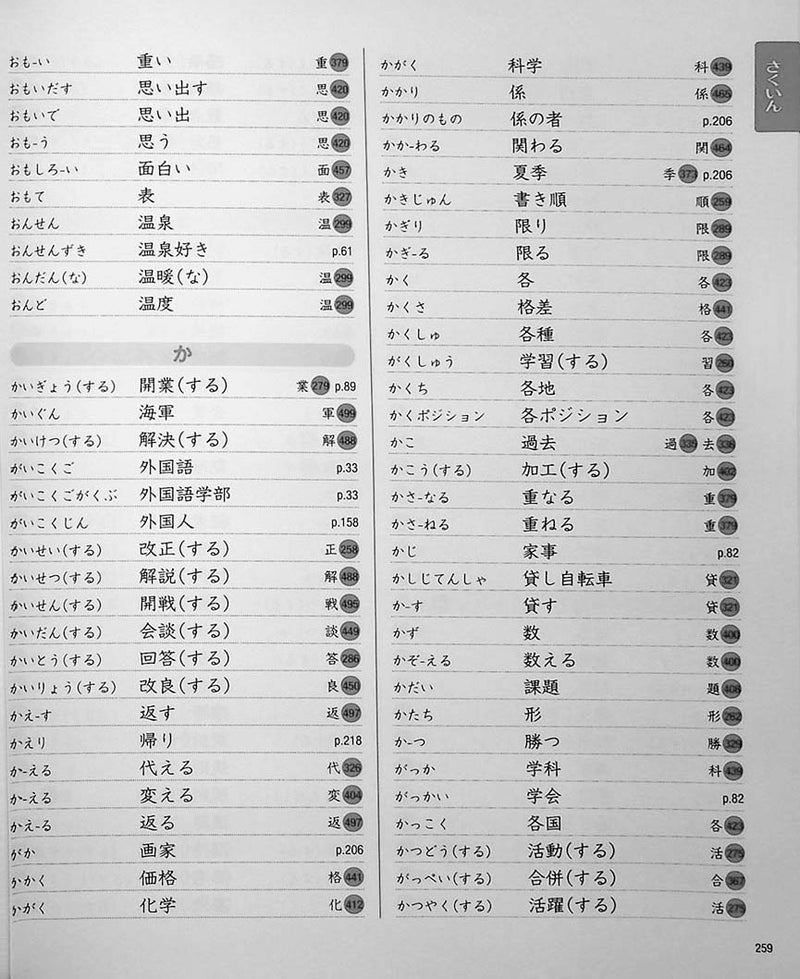 おも-い 重い 重379
おもいだす 思い出す 思420
おもいで 思い出 思420
おも-う 思う 思420
おもしろ-い 面白い 面457
おもて 表 表327
おんせん 温泉 温299
おんせんずき 温泉好き p.61
おんだん(な) 温暖(な) 温299
おんど 温度 温299
か
かいぎょう(する) 開業(する) 業279 p.89
かいぐん 海軍 軍499
かいけつ(する) 解決(する) 解488
がいこくご 外国語 p.33
がいこくごがくぶ 外国語学部 p.33
がいこくじん 外国人 p.158
かいせい(する) 改正(する) 正258
かいせつ(する) 解説(する) 解488
かいせん(する) 開戦(する) 戦495
かいだん(する) 会談(する) 談449
かいとう(する) 回答(する) 答286
かいりょう(する) 改良(する) 良450
かえ-す 返す 返497
かえり 帰り p.218
か-える 代える 代326
か-える 変える 変404
かえ-る 返る 返497
がか 画家 p.206
かかく 価格 格441
かがく 化学 化412
かがく 科学 科439
かかり 係 係465
かかりのもの 係の者 p.206
かか-わる 関わる 関464
かき 夏季 季373 p.206
かきじゅん 書き順 順259
かぎり 限り 限289
かぎ-る 限る 限289
かく 各 各423
かくさ 格差 格441
かくしゅ 各種 各423
がくしゅう 学習(する) 習260
かくち 各地 各423
かくポジション 各ポジション 各423
かこ 過去 過335 去336
かこう(する) 加工(する) 加402
かさ-なる 重なる 重379
かさ-ねる 重ねる 重379
かじ 家事 p.82
かしじてんしゃ 貸し自転車 貸321
か-す 貸す 貸321
かず 数 数400
かぞ-える 数える 数400
かだい 課題 題408
かたち 形 形262
か-つ 勝つ 勝329
がっか 学科 科439
がっかい 学会 p.82
かっこく 各国 各423
かつどう(する) 活動(する) 活275
がっぺい(する) 合併(する) 合367
かつやく(する) 活躍(する) 活275
さくいん
259